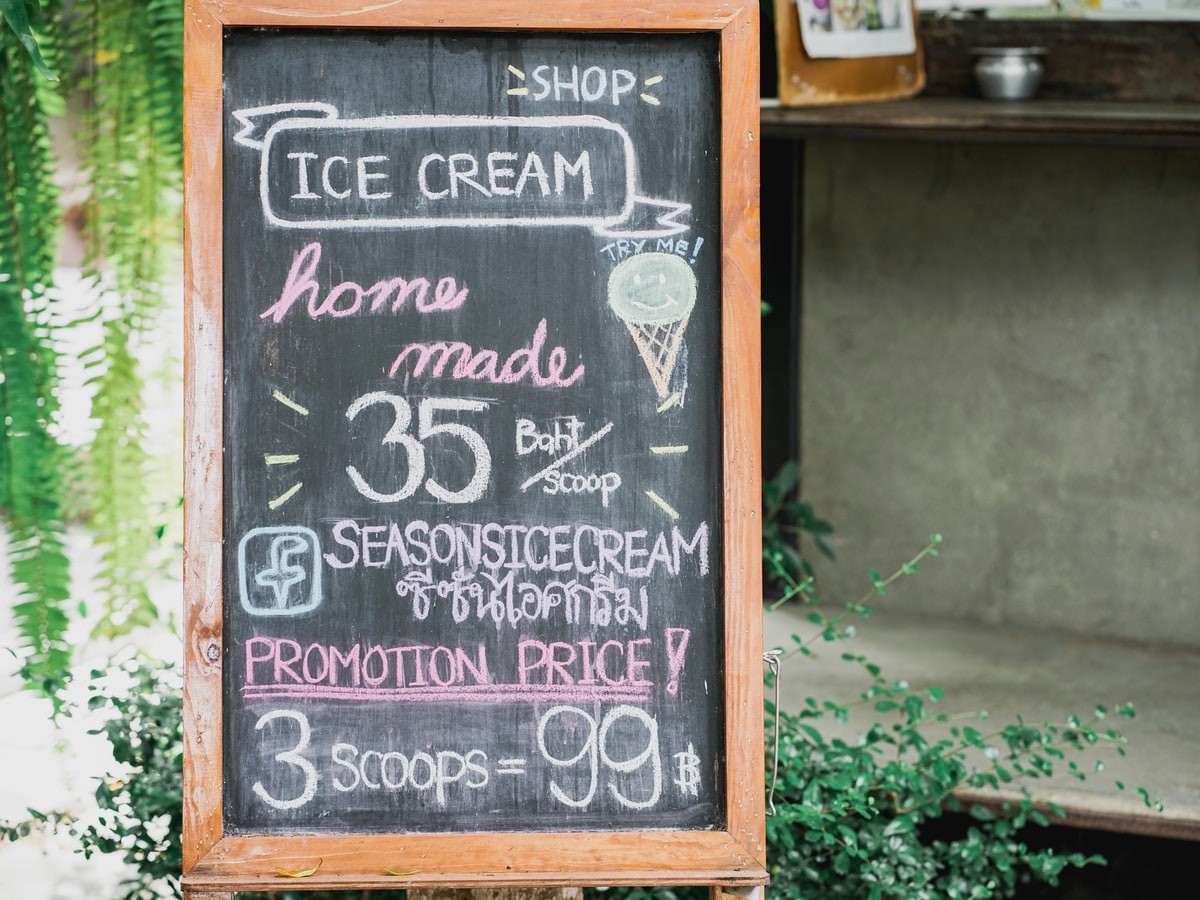 SHOP
ICE CREAM
TRY ME!
home
made
35 Baht/scoop
f SEASONSICECREAM
ซีซันไอศกรีม
PROMOTION PRICE!
3 SCOOPS = 99 ฿